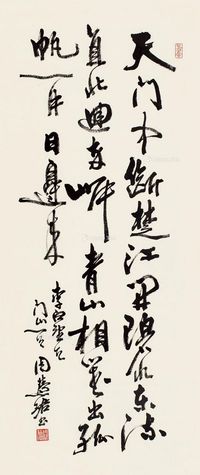 天门中斷楚江開碧水东流
直北迴两岸青山相對出孤
帆一片日邊来
李白望天
门山一首 周慧珺书